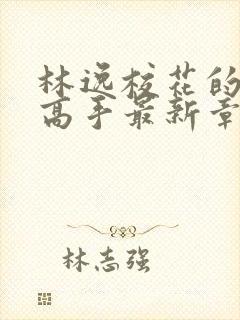 林逸校花的
高手最新章
林志强